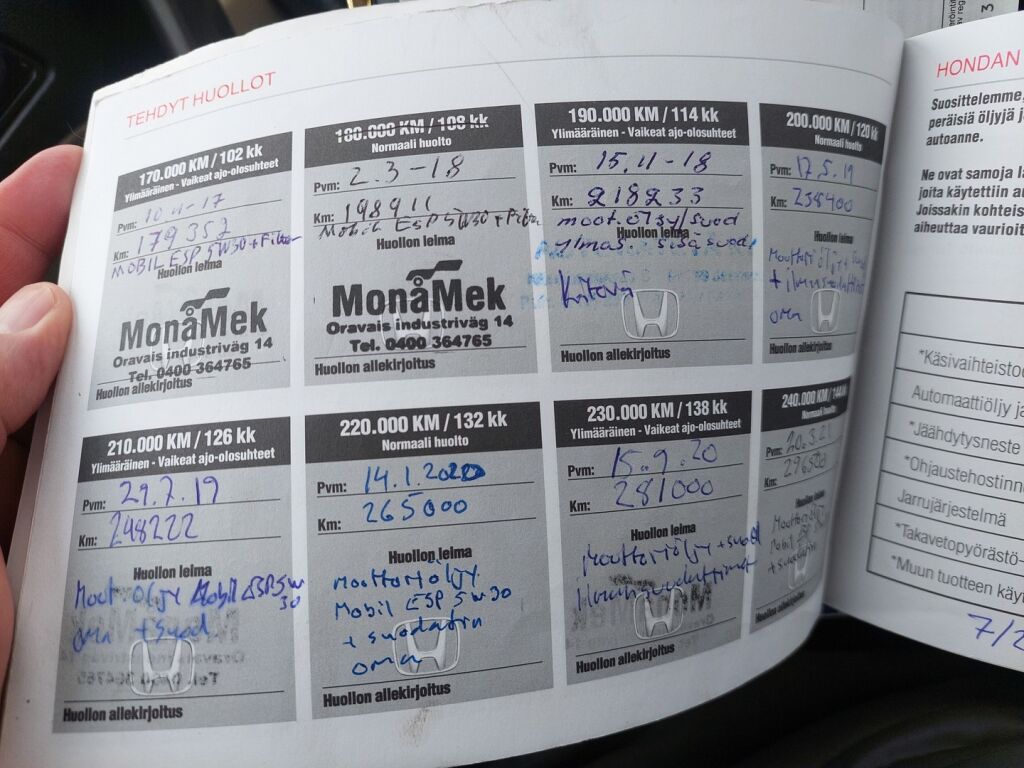 TEHDYT HUOLLOT
170.000 KM / 102 kk
Ylimääräinen - Vaikeat ajo-olosuhteet
Pvm: 10-11-17
Km: 179352
MOBIL ESP 5W30 + Filter
Huollon leima
MonåMek
Oravais industriväg 14
Tel. 0400 364765
Huollon allekirjoitus
180.000 KM / 108 kk
Normaali huolto
Pvm: 2.3-18
Km: 198911
Mobil ESP 5W30 + Filter
Huollon leima
MonåMek
Oravais industriväg 14
Tel. 0400 364765
Huollon allekirjoitus
190.000 KM / 114 kk
Ylimääräinen - Vaikeat ajo-olosuhteet
Pvm: 15.11-18
Km: 218233
moot.öljy/suod
Huollon leima
ylmas. sisäsuod.
Huollon allekirjoitus
200.000 KM / 120 kk
Normaali huolto
Pvm: 17.5.19
Km: 238400
Huollon leima
Moottoriöljy +
+ ilmansuodattimet
oma
Huollon allekirjoitus
210.000 KM / 126 kk
Ylimääräinen - Vaikeat ajo-olosuhteet
Pvm: 29.7.19
Km: 248222
Huollon leima
Moot öljy Mobil ESP 5W
30
oma + suod
Huollon allekirjoitus
220.000 KM / 132 kk
Normaali huolto
Pvm: 14.1.2020
Km: 265000
Huollon leima
Moottoriöljy
Mobil ESP 5W30
+ suodatin
oma
Huollon allekirjoitus
230.000 KM / 138 kk
Ylimääräinen - Vaikeat ajo-olosuhteet
Pvm: 15.9.20
Km: 281000
Huollon leima
Moottoriöljy + suod
Ilmansuodattimet
Huollon allekirjoitus
240.000 KM / 144 kk
Normaali huolto
Pvm: 20.5.21
Km: 296500
Huollon leima
Moottoriöljy
Mobil ESP
+ suodatin
Huollon allekirjoitus
HONDAN
Suosittelemme,
peräisiä öljyjä j
autoanne.
Ne ovat samoja l
joita käytettiin a
Joissakin kohteis
aiheuttaa vaurioit
*Käsivaihteisto
Automaattiöljy ja
*Jäähdytysneste
*Ohjaustehostinn
Jarrujärjestelmä
*Takavetopyörästö-
*Muun tuotteen käyt
7/2